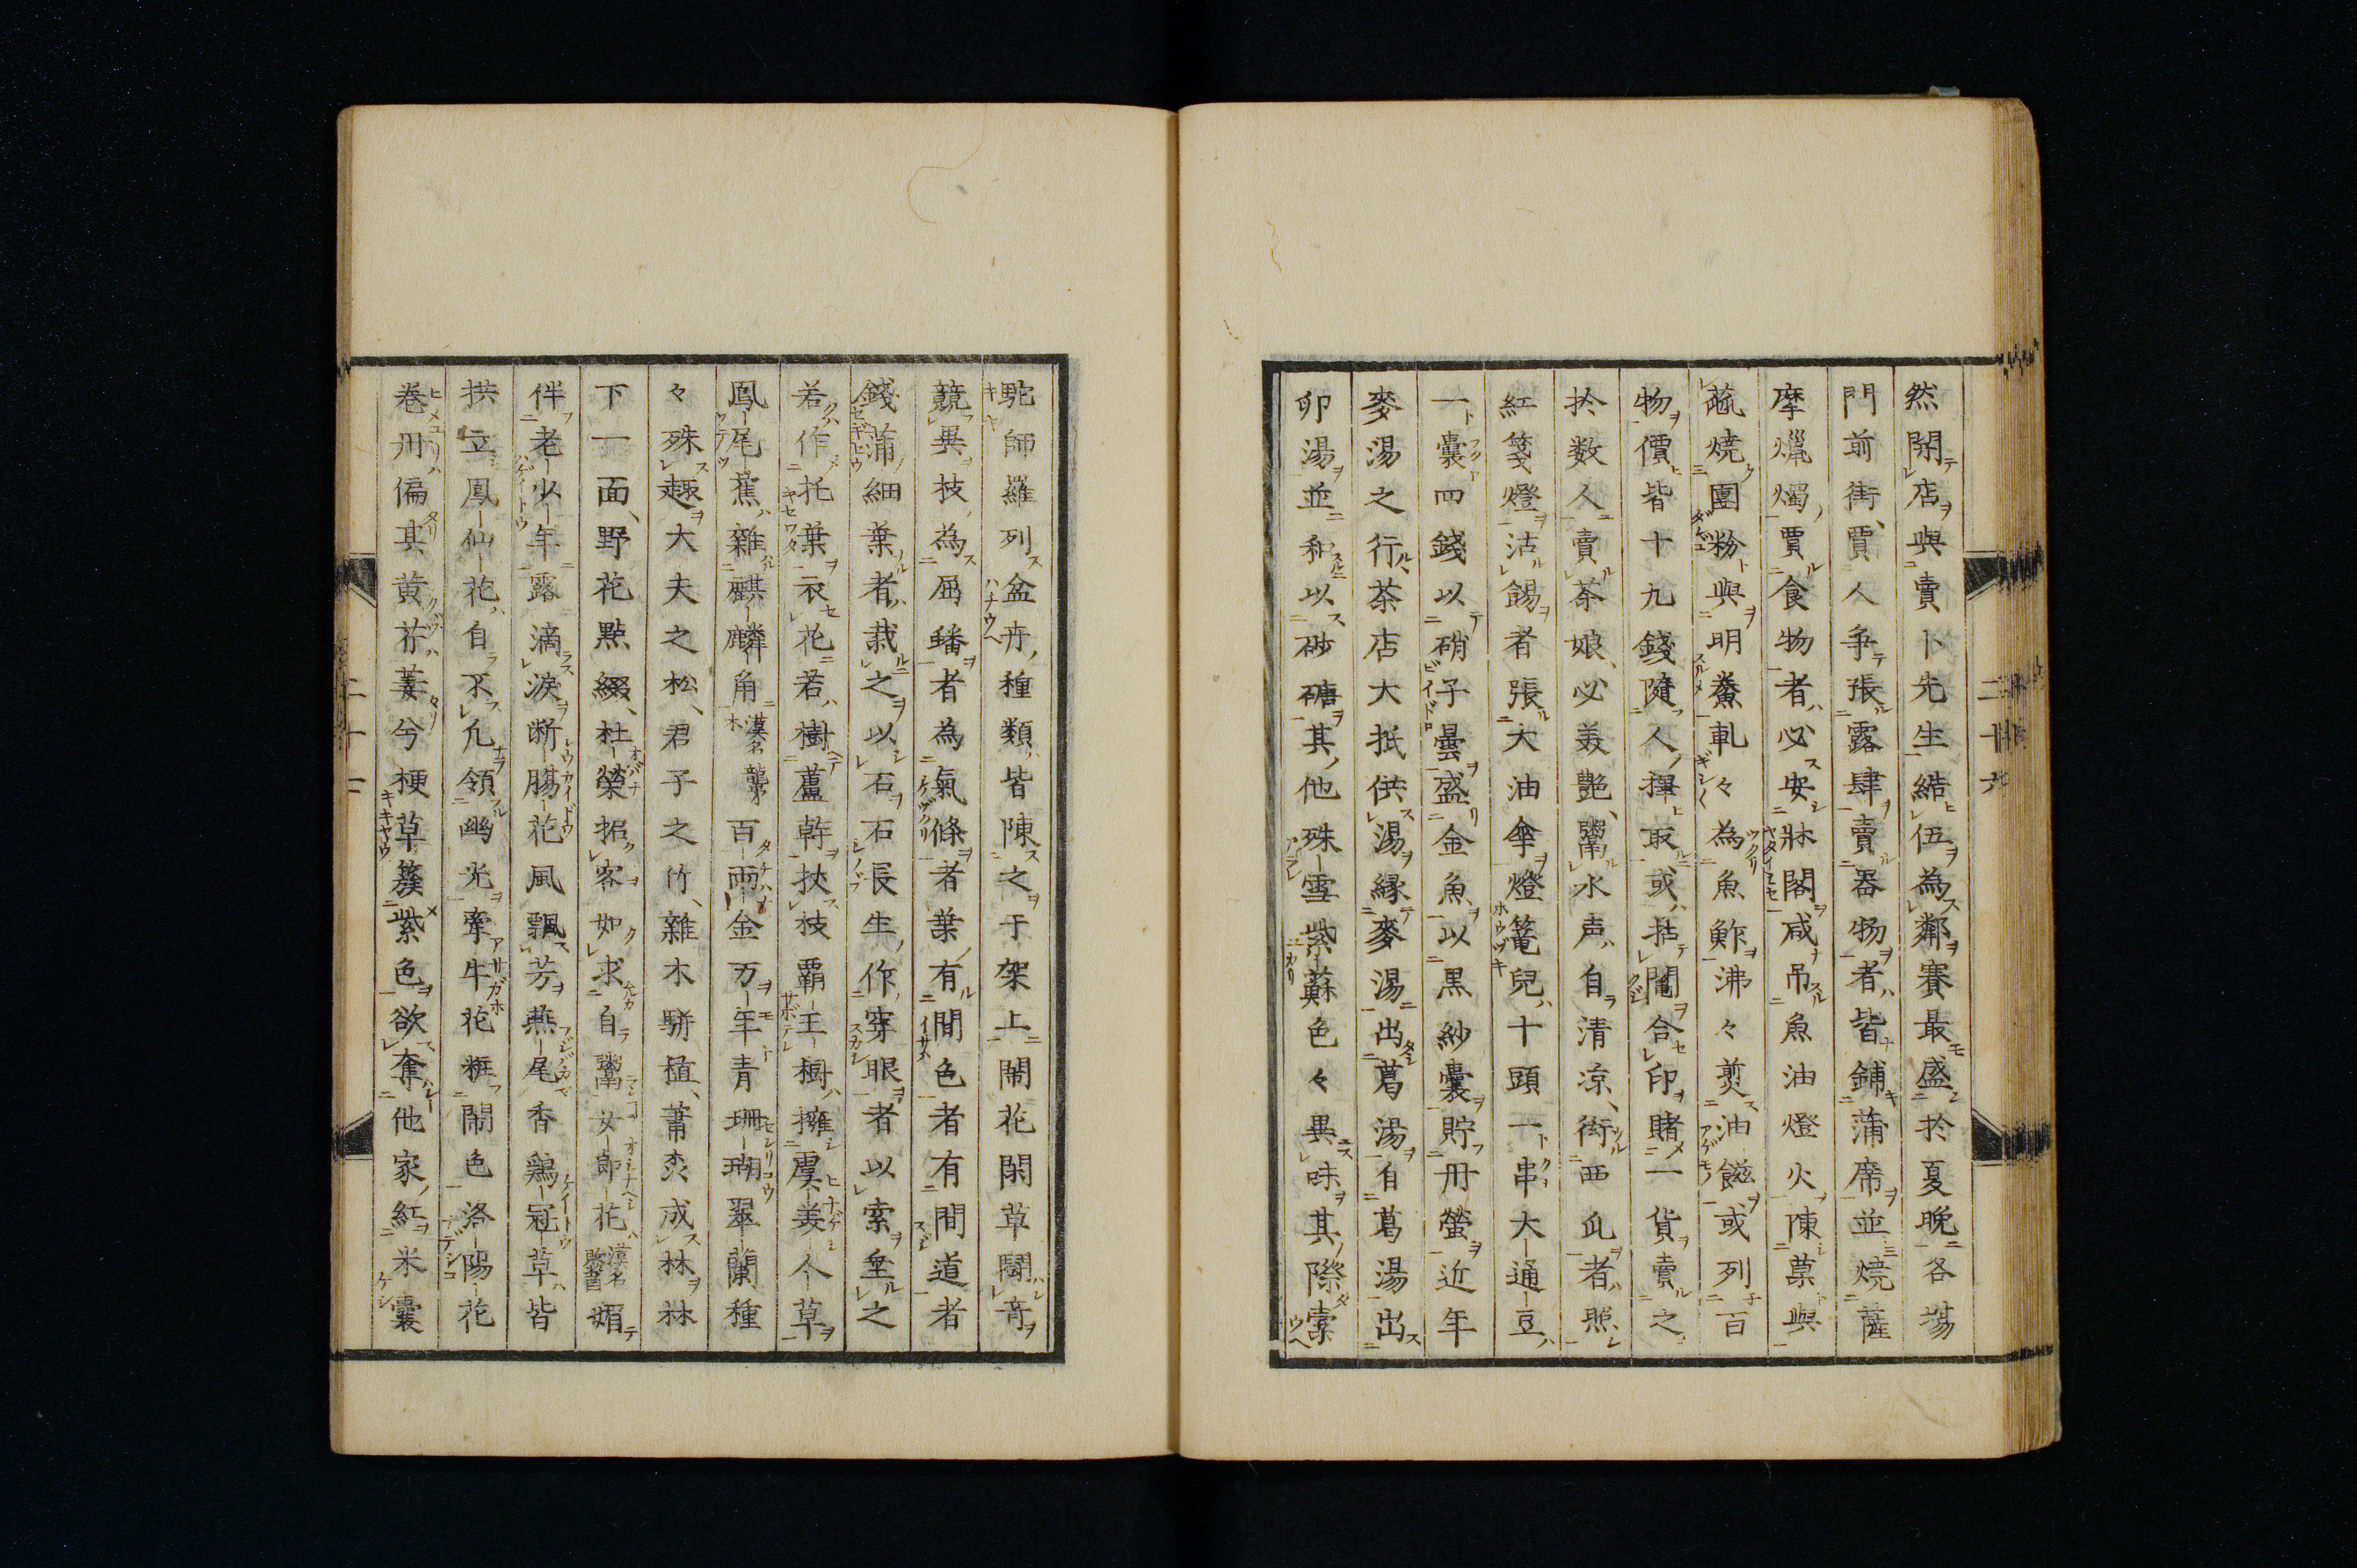 然開店與賣卜先生結伍為鄰賽最盛於夏晚各場
門前街賈人爭張露肆賣器物者皆鋪蒲席並燒薩
摩燭賈食物者必安牀閣咸吊魚油燈火陳菓與
蓏燒團粉與明鮝軋々為魚鮓沸々煎油餻或列百
物價皆十九錢隨人擇取或拈鬮合印賭一貨賣之
於数人賣茶娘必美艷鬻水声自清涼衒西瓜者照
紅箋燈沽錫者張大油傘燈篭兒十頭一串大通豆
一囊四錢以硝子曇盛金魚以黒紗囊貯丹螢近年
麥湯之行茶店大抵供湯縁麥湯出葛湯自葛湯出
卯湯並和以砂糖其他殊雪紫蘇色々異味其際橐
駝師羅列盆卉種類皆陳之于架上鬧花閑草鬪奇
競異枝為屈蟠者為氣條者葉有間色者有間道者
錢蒲細葉者栽之以石石長生作穿眼者以索垂之
若作托葉衣花若樹蘆幹挾枝覇王樹擁虞美人草
鳳尾蕉雜麒麟角漢名龍木百両金万年青珊瑚翠蘭種
々殊趣大夫之松君子之竹雜木駢植蕭森成林林
下一面野花點綴杜榮招客如求自鬻女郎花漢名敗醤媚
伴老少年露滴淚断腸花風飄芳燕尾香鶏冠草皆
拱立鳳仙花自不凢領幽光牽牛花粧鬧色洛陽花
卷丹偏其黄芥萋兮梗草簇紫色欲奪他家紅米囊
二十六